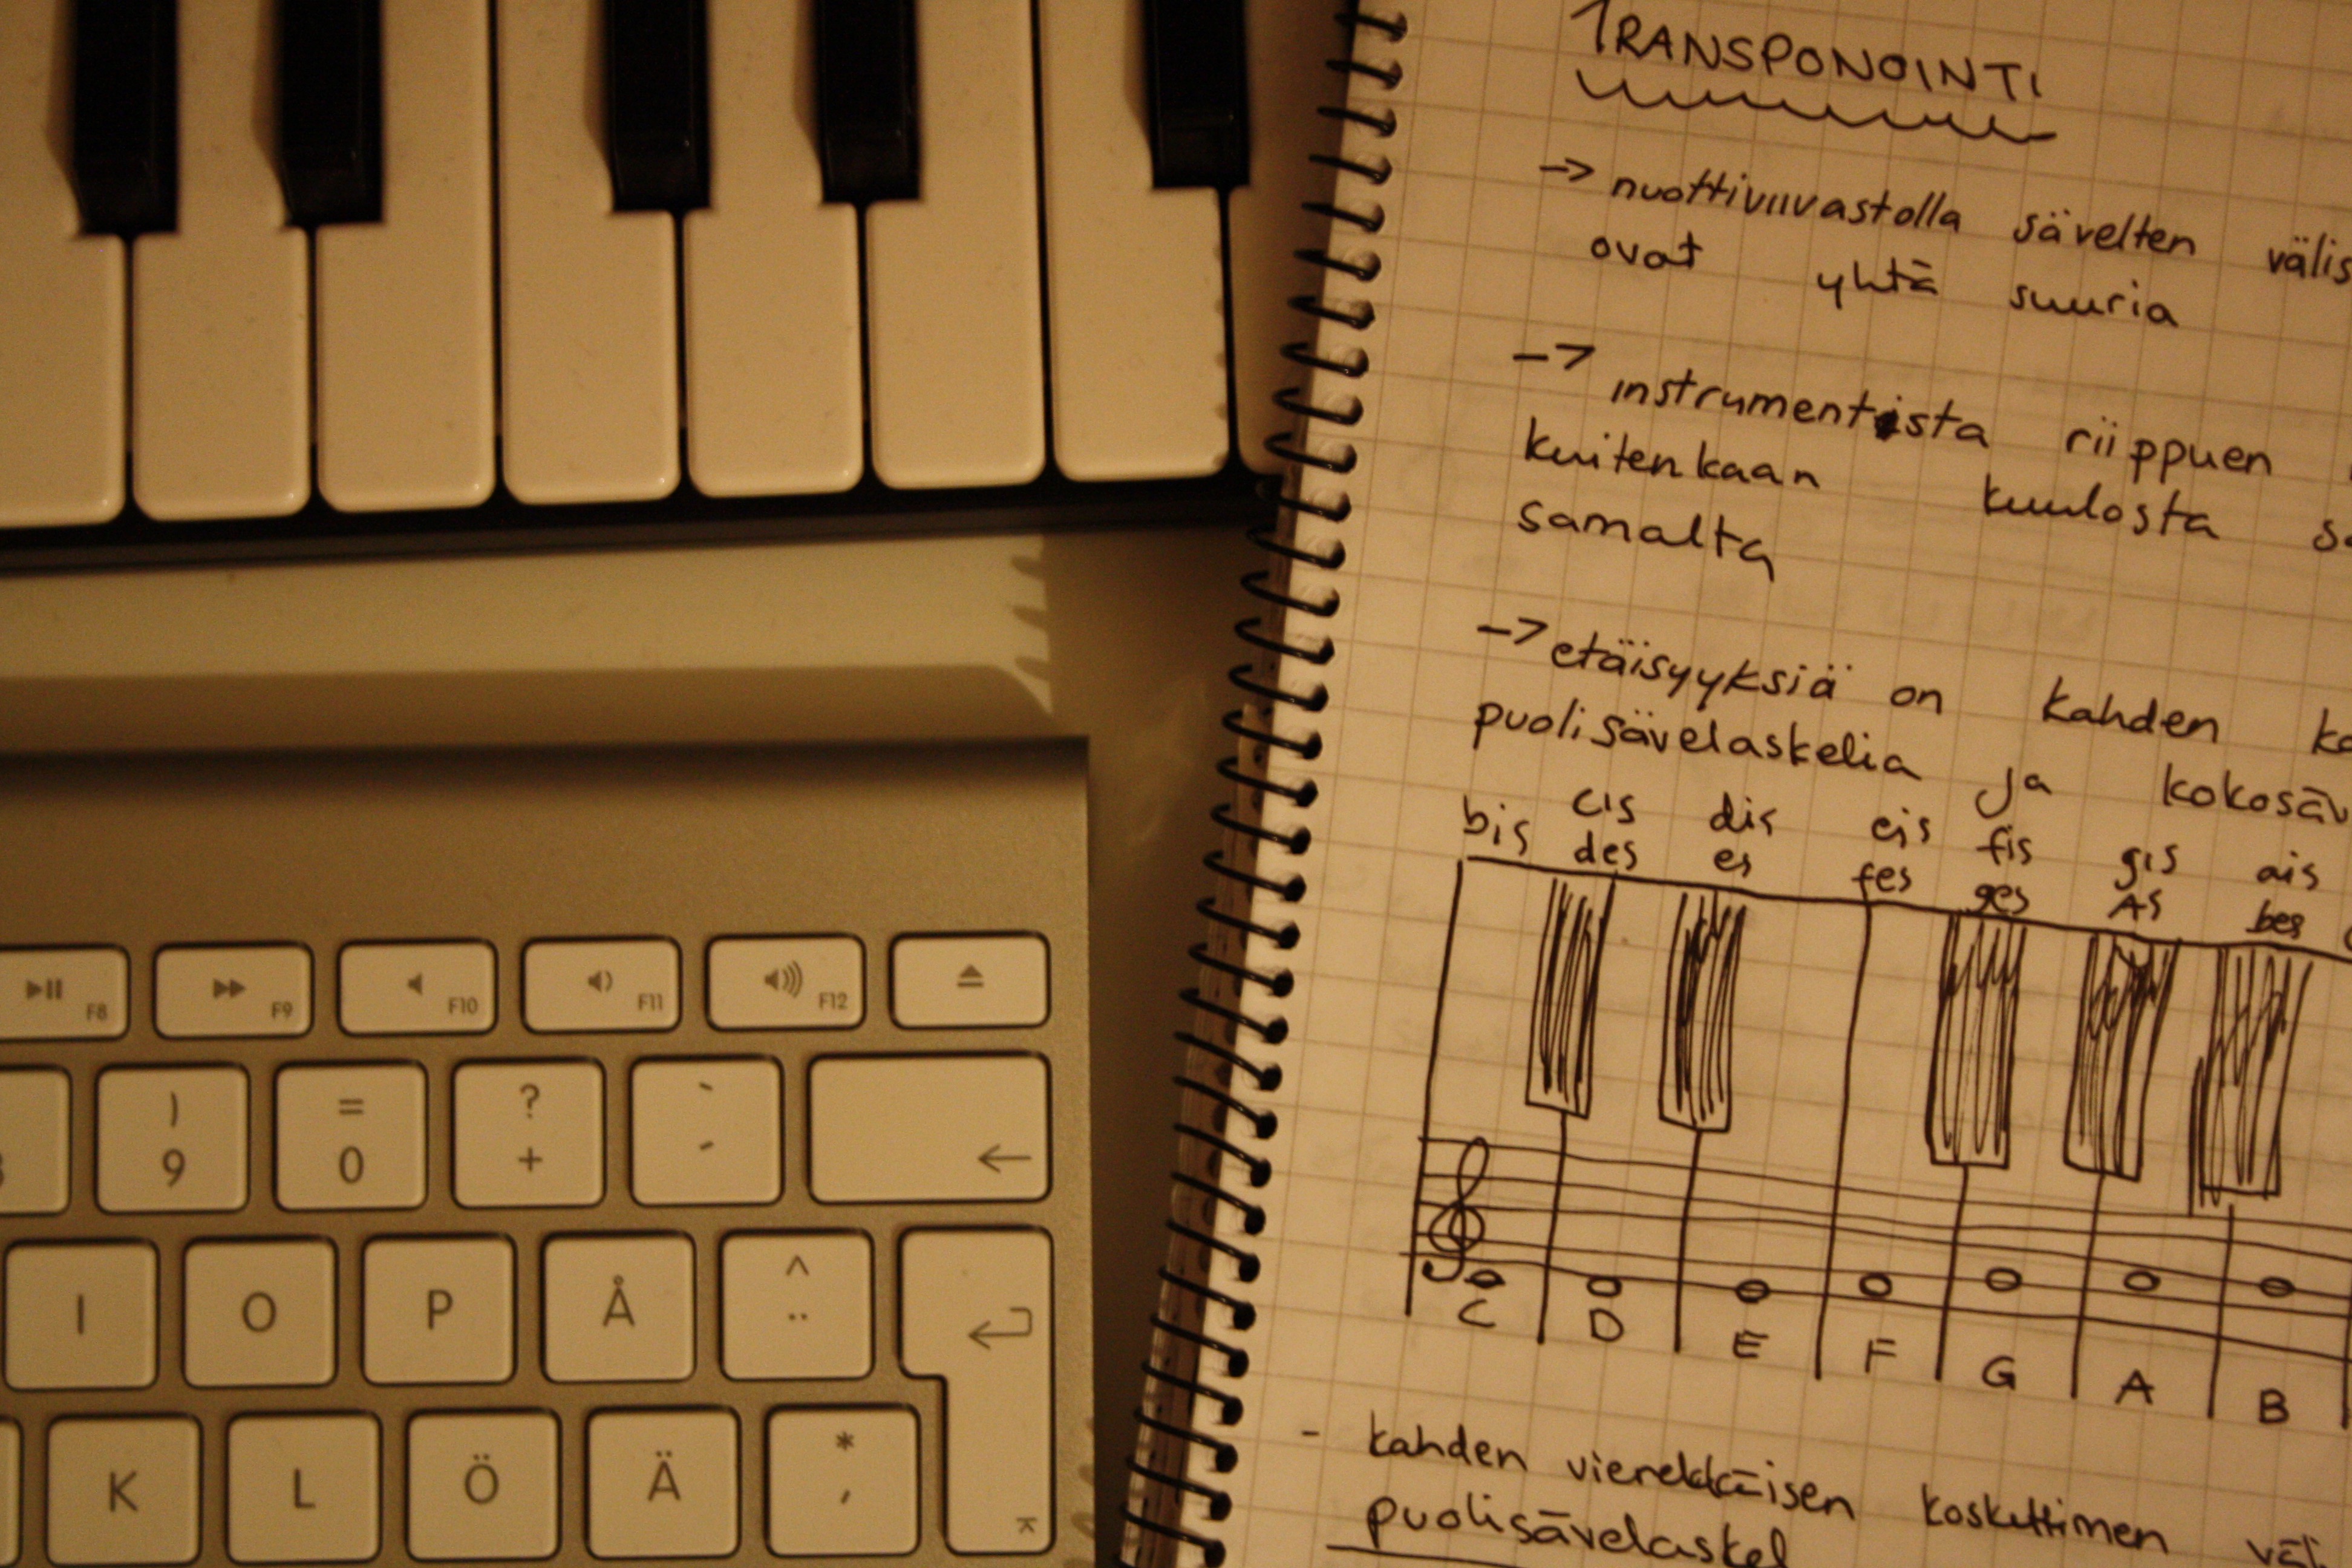 TRANSPONOINTI
-> nuottiviivastolla sävelten
ovat yhtä suuria
-> instrumentista riippuen
kuitenkaan kuulosta
samalta
-> etäisyyksiä on kahden
puolisävelaskelia ja
bis cis dis eis fis gis ais
des es fes ges As bes
C D E F G A B
- kahden vierekkäisen koskettimen
puolisävelaskel
F8 F9 F10 F11 F12
) = ? `
9 0 + ´
I O P Å ^ ¨
K L Ö Ä * '